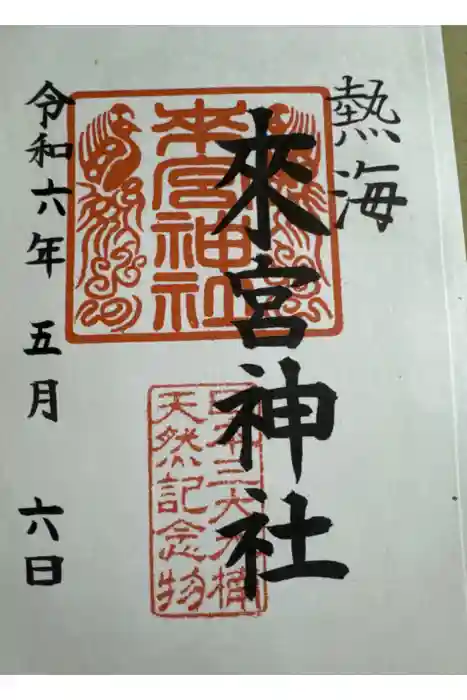 熱海
來宮神社
來宮神社
日本三大大楠
天然記念物
令和六年 五月 六日